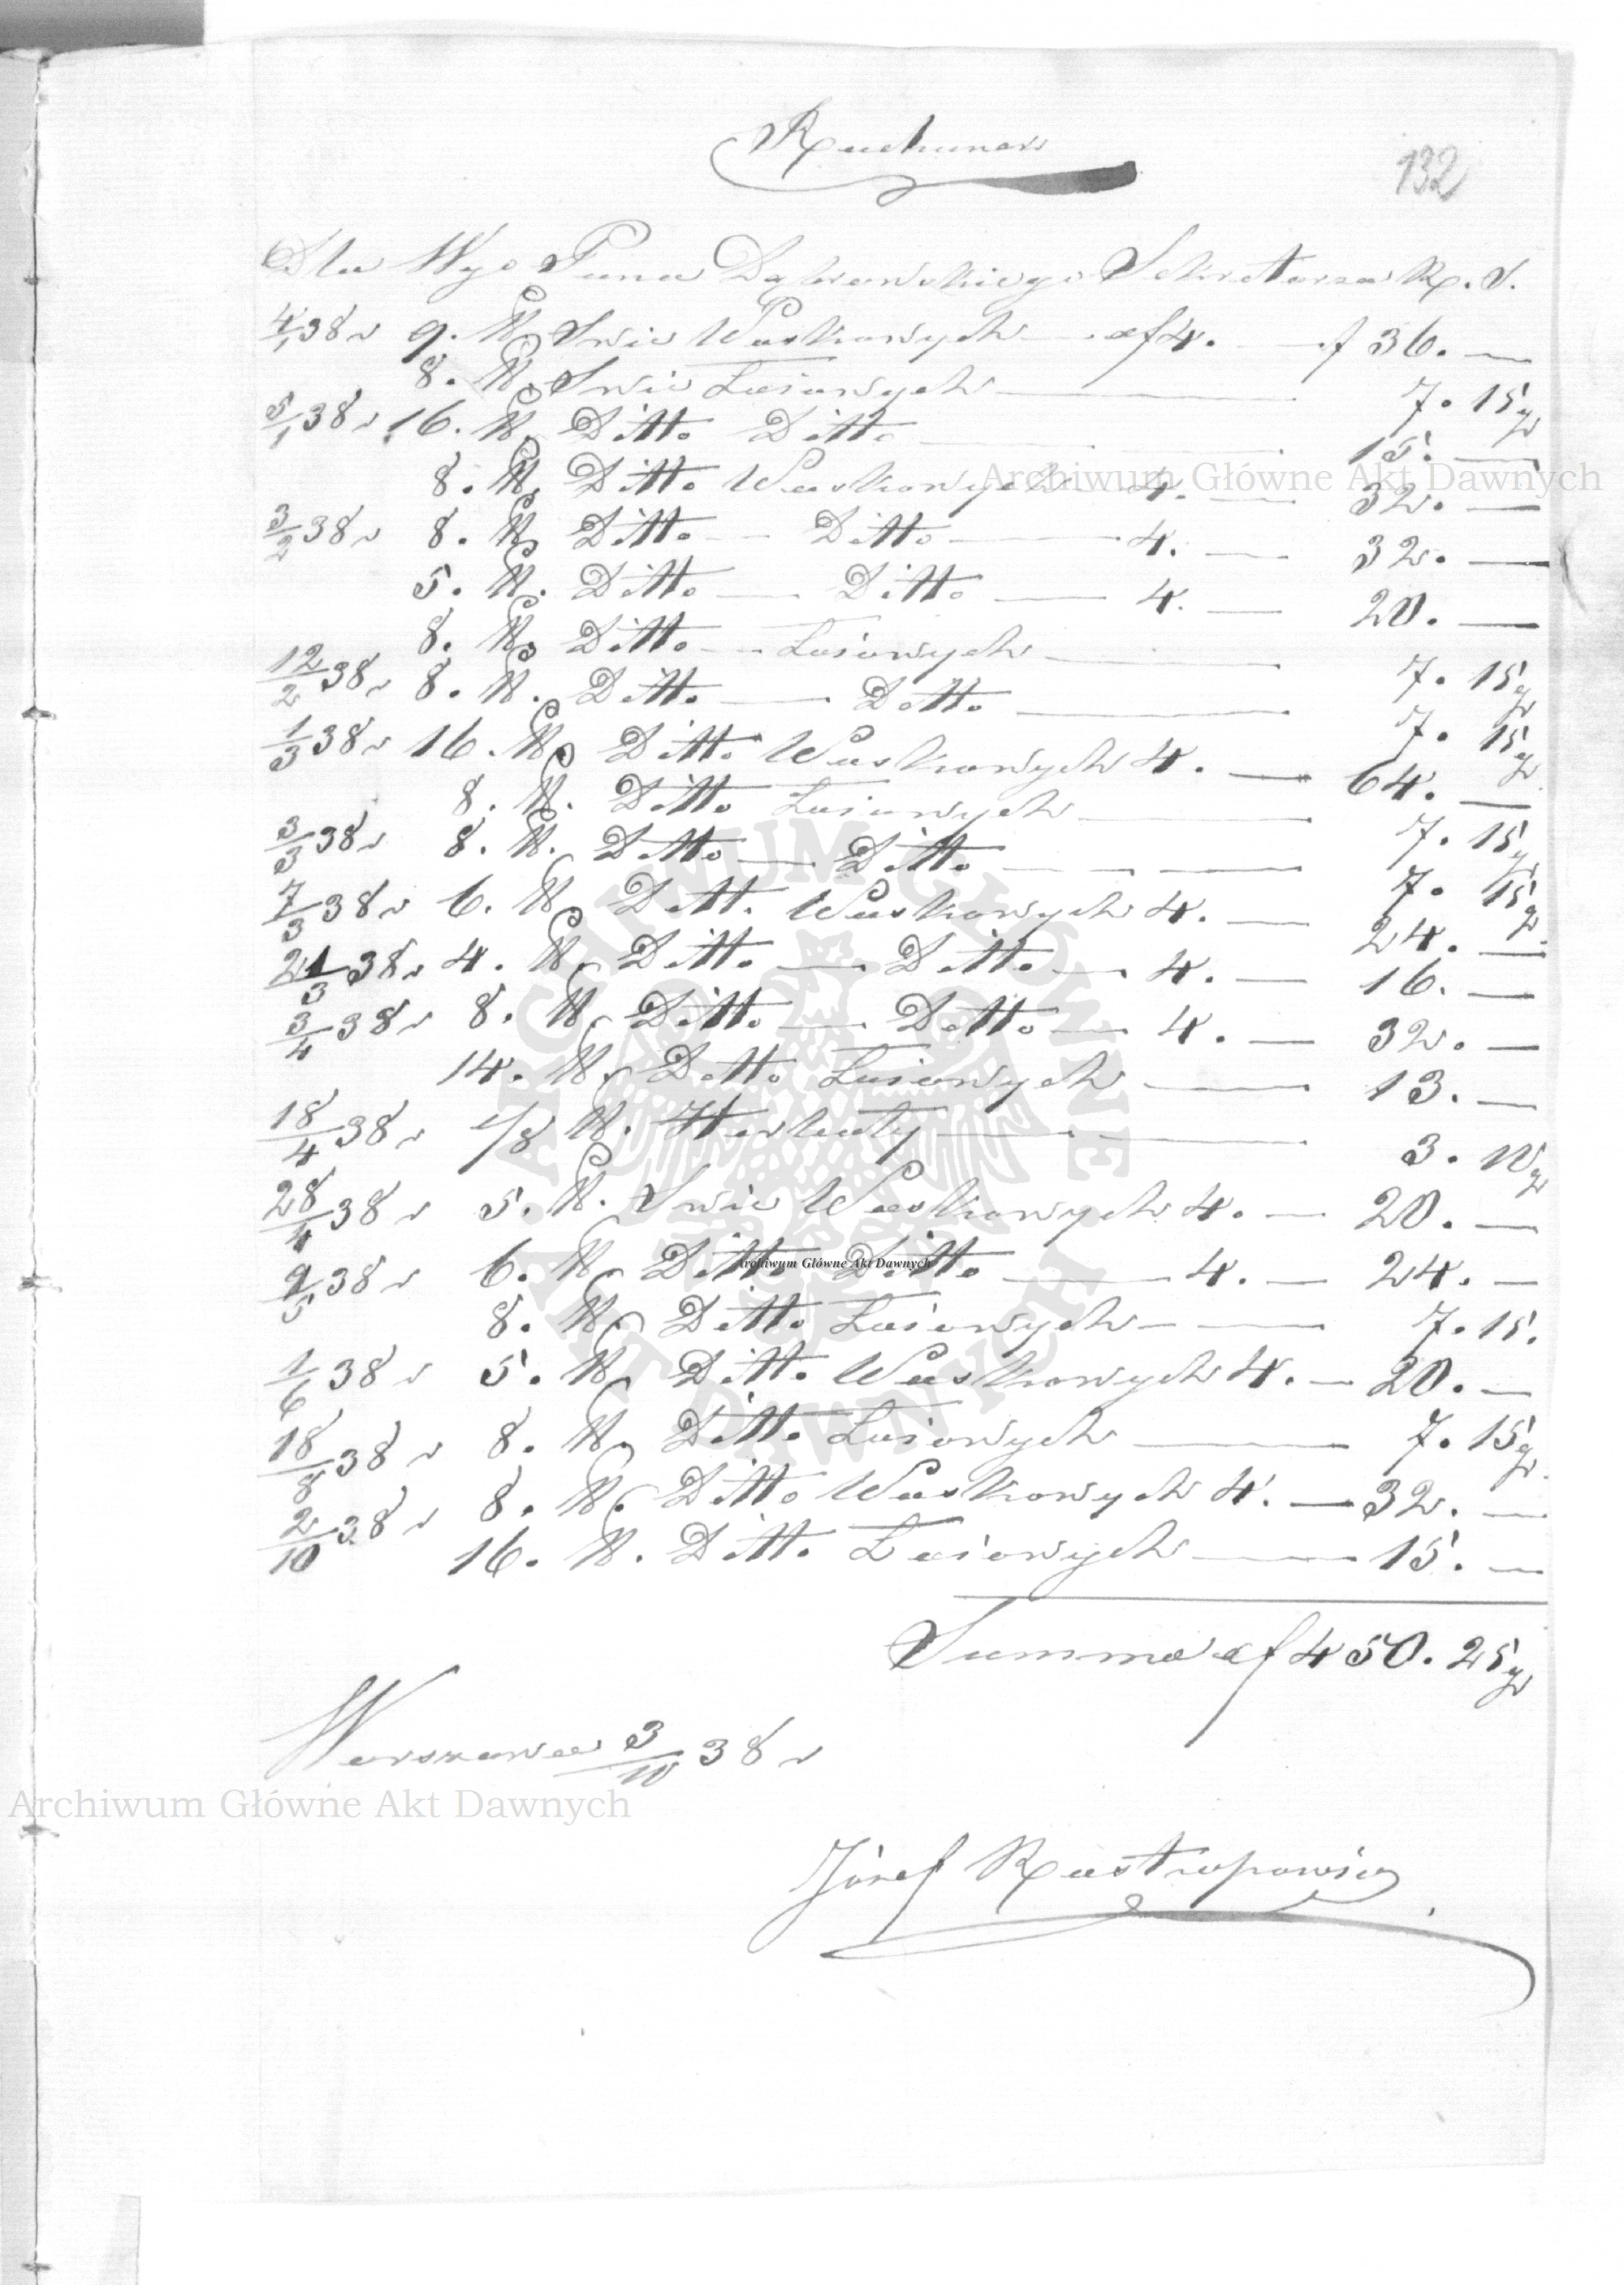 132
Rachunek
Dla Wgo Pana Dąbrowskiego Sekretarza R. S.
4/1 38 r 9. ℔ Swic Woskowych — af 4. — f 36. —
8. ℔ Swic Łoiowych — 7. 15 gr
5/1 38 r 16. ℔ Ditto Ditto — 15. —
8. ℔ Ditto Woskowych 4. — 32. —
3/2 38 r 8. ℔ Ditto — Ditto — 4. — 32. —
5. ℔ Ditto — Ditto — 4. — 20. —
8. ℔ Ditto — Łoiowych — 7. 15 gr
12/2 38 r 8. ℔ Ditto — Ditto — 7. 15 gr
1/3 38 r 16. ℔ Ditto Woskowych 4. — 64. —
8. ℔ Ditto Łoiowych — 7. 15 gr
3/3 38 r 8. ℔ Ditto — Ditto — 7. 15 gr
7/3 38 r 6. ℔ Ditto Woskowych 4. — 24. —
21/3 38 r 4. ℔ Ditto — Ditto — 4. — 16. —
3/4 38 r 8. ℔ Ditto — Ditto — 4. — 32. —
14. ℔ Ditto Łoiowych — 13. —
18/4 38 r 1/8 ℔ Herbaty — 3. 10 gr
28/4 38 r 5. ℔ Swic Woskowych 4. — 20. —
9/5 38 r 6. ℔ Ditto Ditto — 4. — 24. —
8. ℔ Ditto Łoiowych — 7. 15.
1/6 38 r 5. ℔ Ditto Woskowych 4. — 20. —
18/8 38 r 8. ℔ Ditto Łoiowych — 7. 15 gr
2/10 38 r 8. ℔ Ditto Woskowych 4. — 32. —
16. ℔ Ditto Łoiowych — 15. —
Summa af 450. 25 gr
Warszawa 3/10 38 r
Józef Rastropowicz
Archiwum Główne Akt Dawnych
Archiwum Główne Akt Dawnych
Archiwum Główne Akt Dawnych
ARCHIWUM GŁÓWNE AKT DAWNYCH